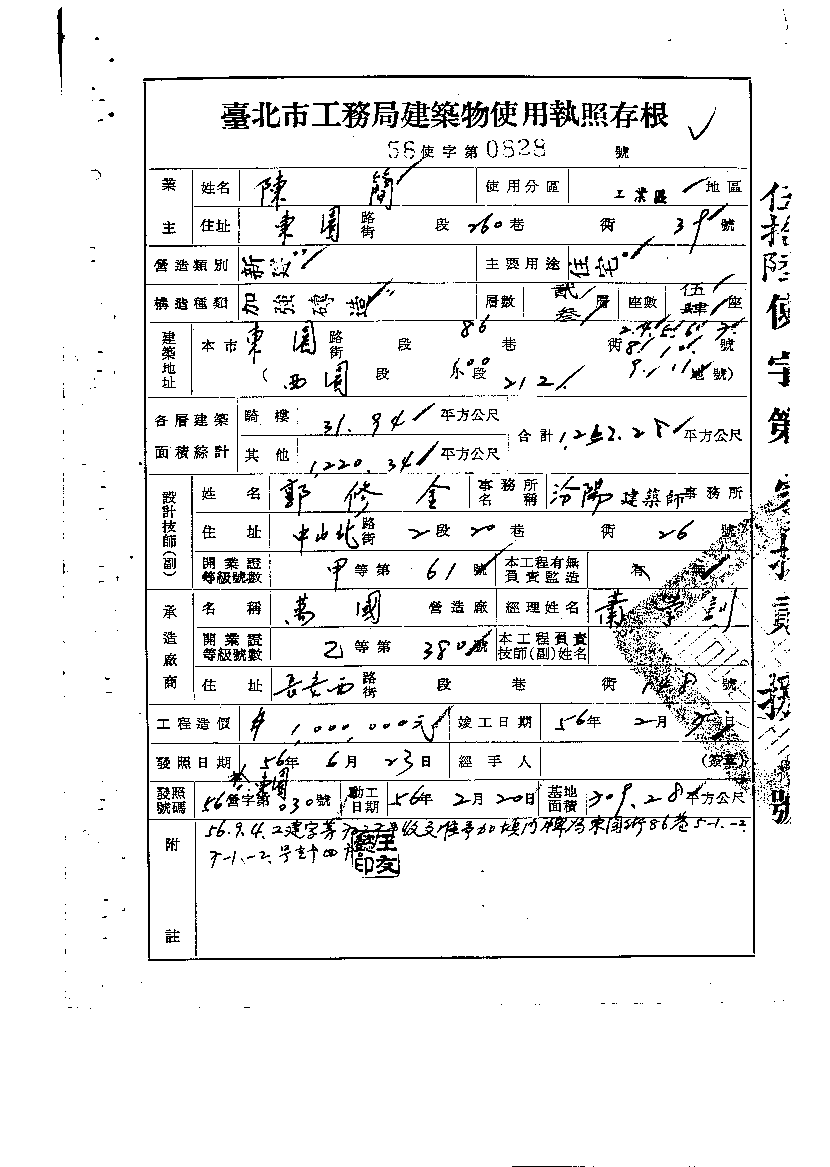 臺北市工務局建築物使用執照存根
56使字第0828號
業主 姓名 陳簡 使用分區 工業區 地區
住址 東園 路街 段 260巷 衖 39號
營造類別 新 主要用途 住宅
構造種類 加強磚造 層數 貳 叁 層 座數 伍 肆 座
建築地址 本市 東園 路街 段 86 巷 衖 號
(西園 段 小段 212 地號)
各層建築面積綜計 騎樓 31.94 平方公尺 合計 1,252.28 平方公尺
其他 1,220.34 平方公尺
設計技師(副) 姓名 郭修金 事務所名稱 汾陽 建築師事務所
住址 中山北 路街 2段 20巷 衖 26號
開業證等級號數 甲等第 61號 本工程有無負責監造 有 無
承造廠商 名稱 萬國 營造廠 經理姓名 蕭學訓
開業證等級號數 乙等第 380號 本工程負責技師(副)姓名
住址 長安西 路街 段 巷 衖 148號
工程造價 1,000,000元 竣工日期 56年 2月 日
發照日期 56年 6月 23日 經手人 (簽章)
發照號碼 56營字第 東園 030號 動工日期 56年 2月 20日 基地面積 309.28 平方公尺
附註 56.9.4. 建字第 號收文 加填門牌為東園街86巷5-1.-2.
7-1.-2.號計四戶
伍拾陸使字第 號